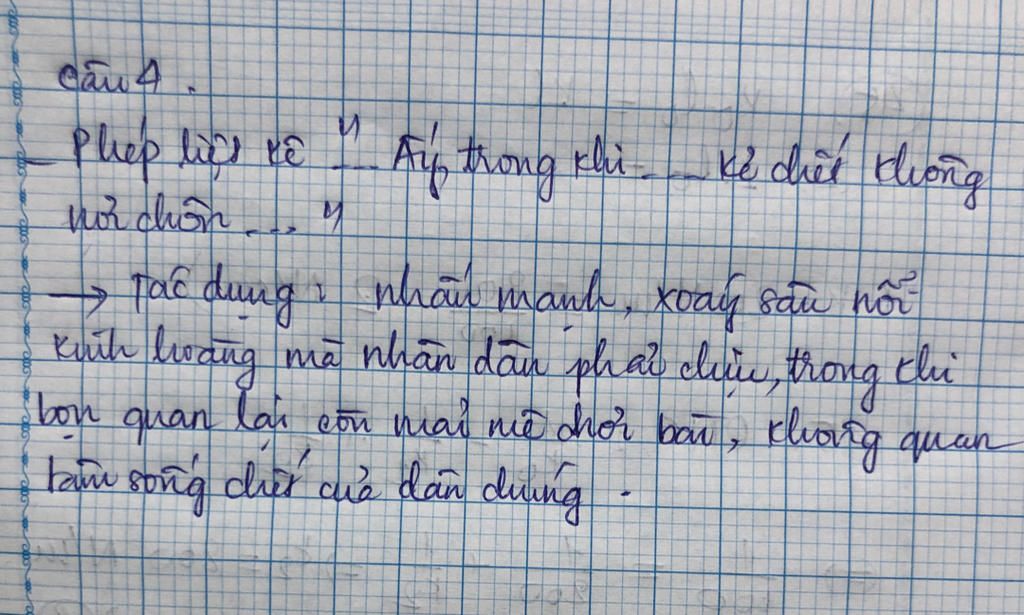 câu 4.
- Phép liệt kê "... Ấy, trong khi .... kẻ chết không
nơi chôn .... "
→ Tác dụng: nhấn mạnh, xoáy sâu nỗi
kinh hoàng mà nhân dân phải chịu, trong khi
bọn quan lại còn mải mê chơi bài, không quan
tâm sống chết của dân chúng.